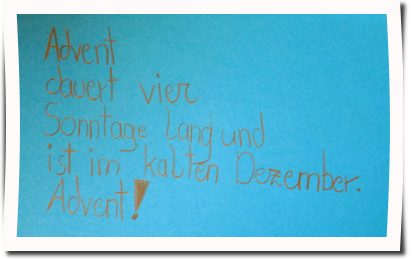 Advent
dauert vier
Sonntage lang und
ist im kalten Dezember.
Advent!